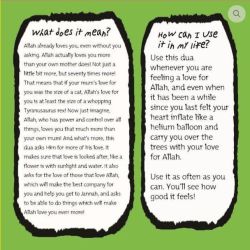 What does it mean?
Allah already loves you, even without you
asking. Allah actually loves you more
than your own mother does! Not just a
little bit more, but seventy times more!
That means that if your mum's love for
you was the size of a cat, Allah's love for
you is at least the size of a whopping
Tyrannosaurus rex! Now just imagine,
Allah, who has power and control over all
things, loves you that much more than
your own mum! And, what's more, this
dua asks Him for more of his love. It
makes sure that love is looked after, like a
flower is with sunlight and water. It also
asks for the love of those that love Allah,
which will make the best company for
you and help you get to Jannah, and asks
to be able to do things which will make
Allah love you even more!
How can I use
it in my life?
Use this dua
whenever you are
feeling a love for
Allah, and even when
it has been a while
since you last felt your
heart inflate like a
helium balloon and
carry you over the
trees with your love
for Allah.
Use it as often as you
can. You'll see how
good it feels!